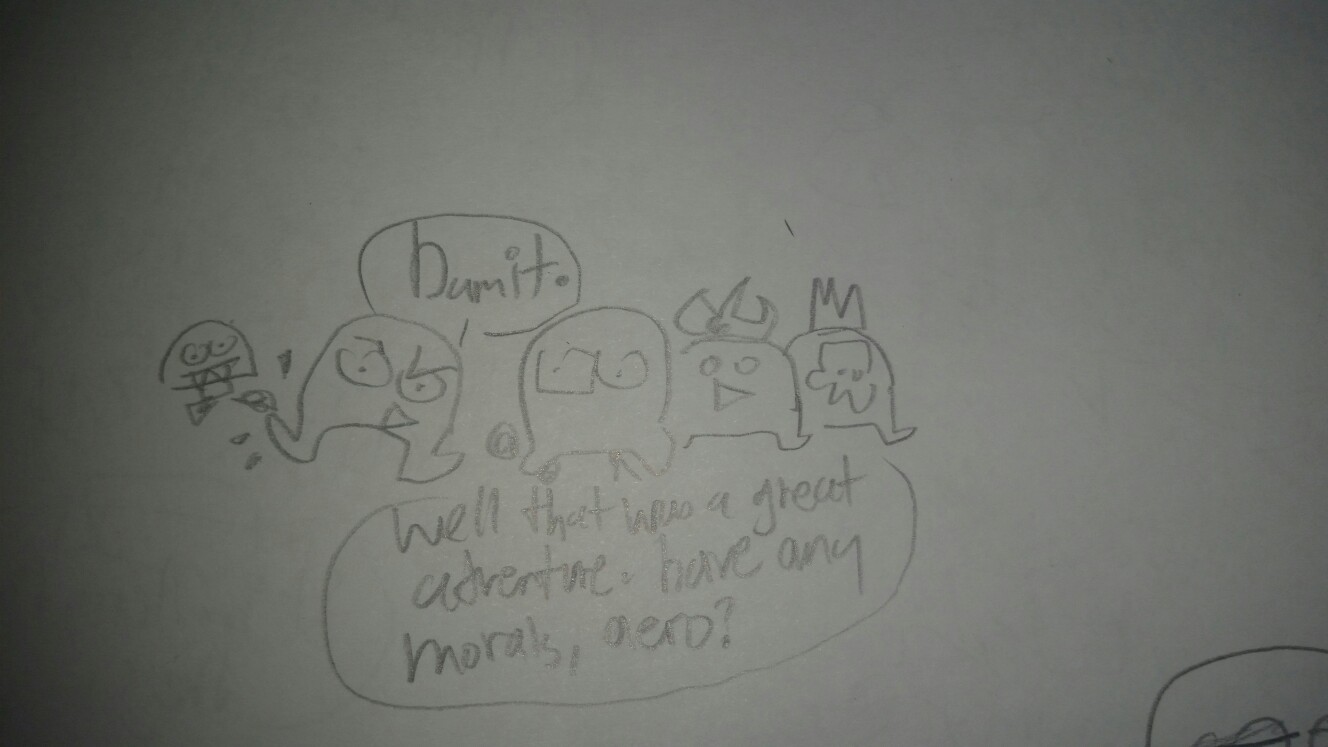 Damit.
Well that was a great
adventure. have any
morals, aero?